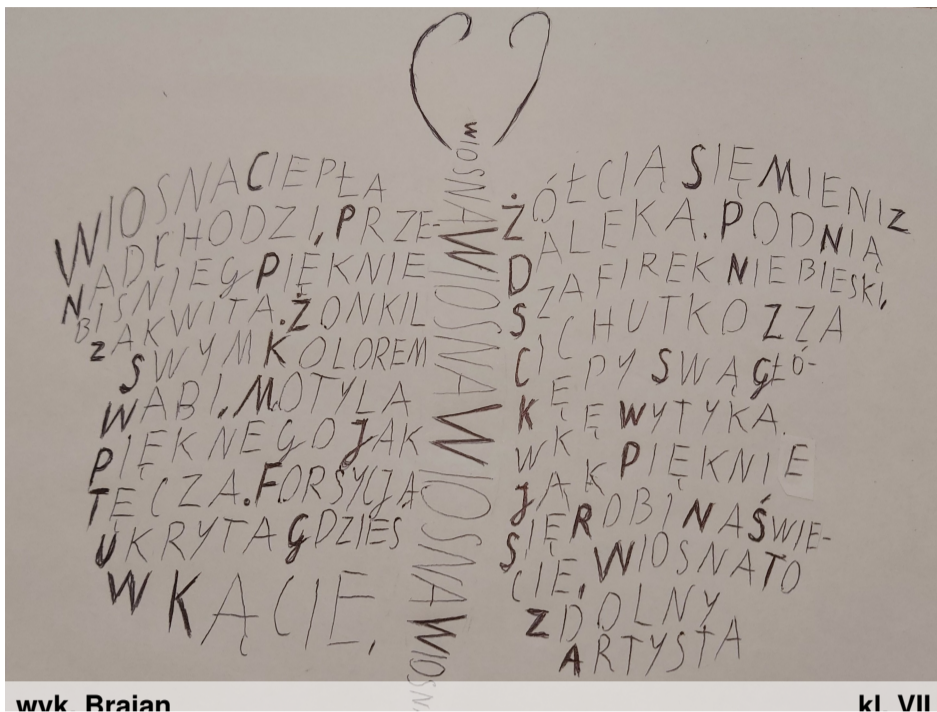 WIOSNAWIOSNAWIOSNAWIOSN
WIOSNACIEPŁA
NADCHODZI, PRZE-
BIŚNIEG PIĘKNIE
ZAKWITA. ŻONKIL
SWYM KOLOREM
WABI, MOTYLA
PIĘKNEGO JAK
TĘCZA. FORSYCJA
UKRYTA GDZIEŚ
W KĄCIE,
ŻÓŁCIĄ SIĘ MIENI Z
DALEKA. POD NIĄ
SZAFIREK NIEBIESKI,
CICHUTKO ZZA
KĘPY SWĄ GŁÓ-
WKĘ WYTYKA.
JAK PIĘKNIE
SIĘ ROBI NA ŚWIE-
CIE, WIOSNA TO
ZDOLNY
ARTYSTA
wyk. Brajan
kl. VII